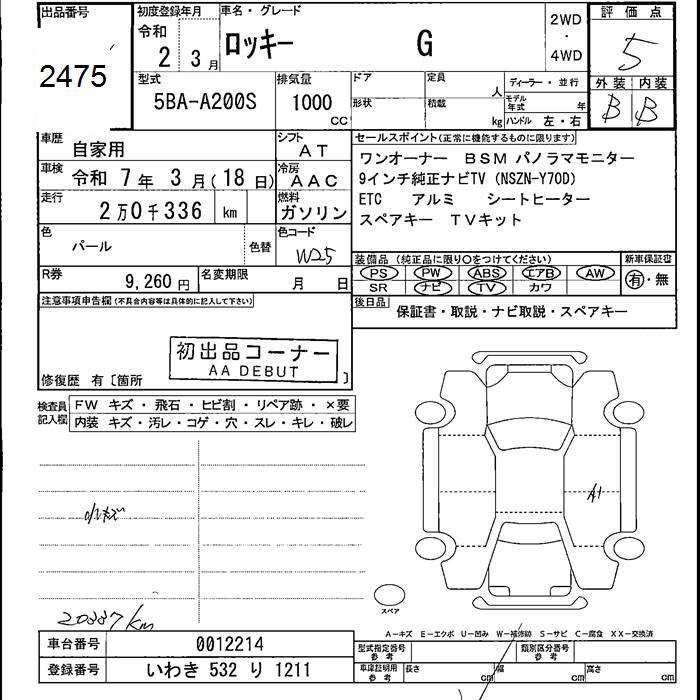 出品番号
2475
初度登録年月
令和
2 3月
車名・グレード
ロッキー G
2WD
・
4WD
評価点
5
外装 内装
B B
型式
5BA-A200S
排気量
1000
CC
ドア
定員
人
ディーラー・並行
形状
積載
kg
モデル年式
年
ハンドル 左・右
車歴
自家用
シフト
AT
車検
令和 7年 3月(18日)
冷房
AAC
走行
2万0千336 km
燃料
ガソリン
色
パール
色替
色コード
W25
R券
9,260円
名変期限
月 日
セールスポイント(正常に機能するものに限ります)
ワンオーナー BSM パノラマモニター
9インチ純正ナビTV (NSZN-Y70D)
ETC アルミ シートヒーター
スペアキー TVキット
装備品 (純正品に限り○をつけてください)
新車保証書
PS PW ABS エアB AW
SR ナビ TV カワ
有・無
後日品
保証書・取説・ナビ取説・スペアキー
注意事項申告欄(不具合内容等は具体的に記入して下さい)
初出品コーナー
AA DEBUT
修復歴 有〔箇所 〕
検査員
記入欄
FW キズ・飛石・ヒビ割・リペア跡・×要
内装 キズ・汚レ・コゲ・穴・スレ・キレ・破レ
A1
20337km
スペア
A-キズ E-エクボ U-凹み W-補修跡 S-サビ C-腐食 XX-交換済
車台番号
0012214
登録番号
いわき 532 り 1211
型式指定番号
参考
類別区分番号
参考
車庫証明用
参考
長さ
cm
幅
cm
高さ
cm